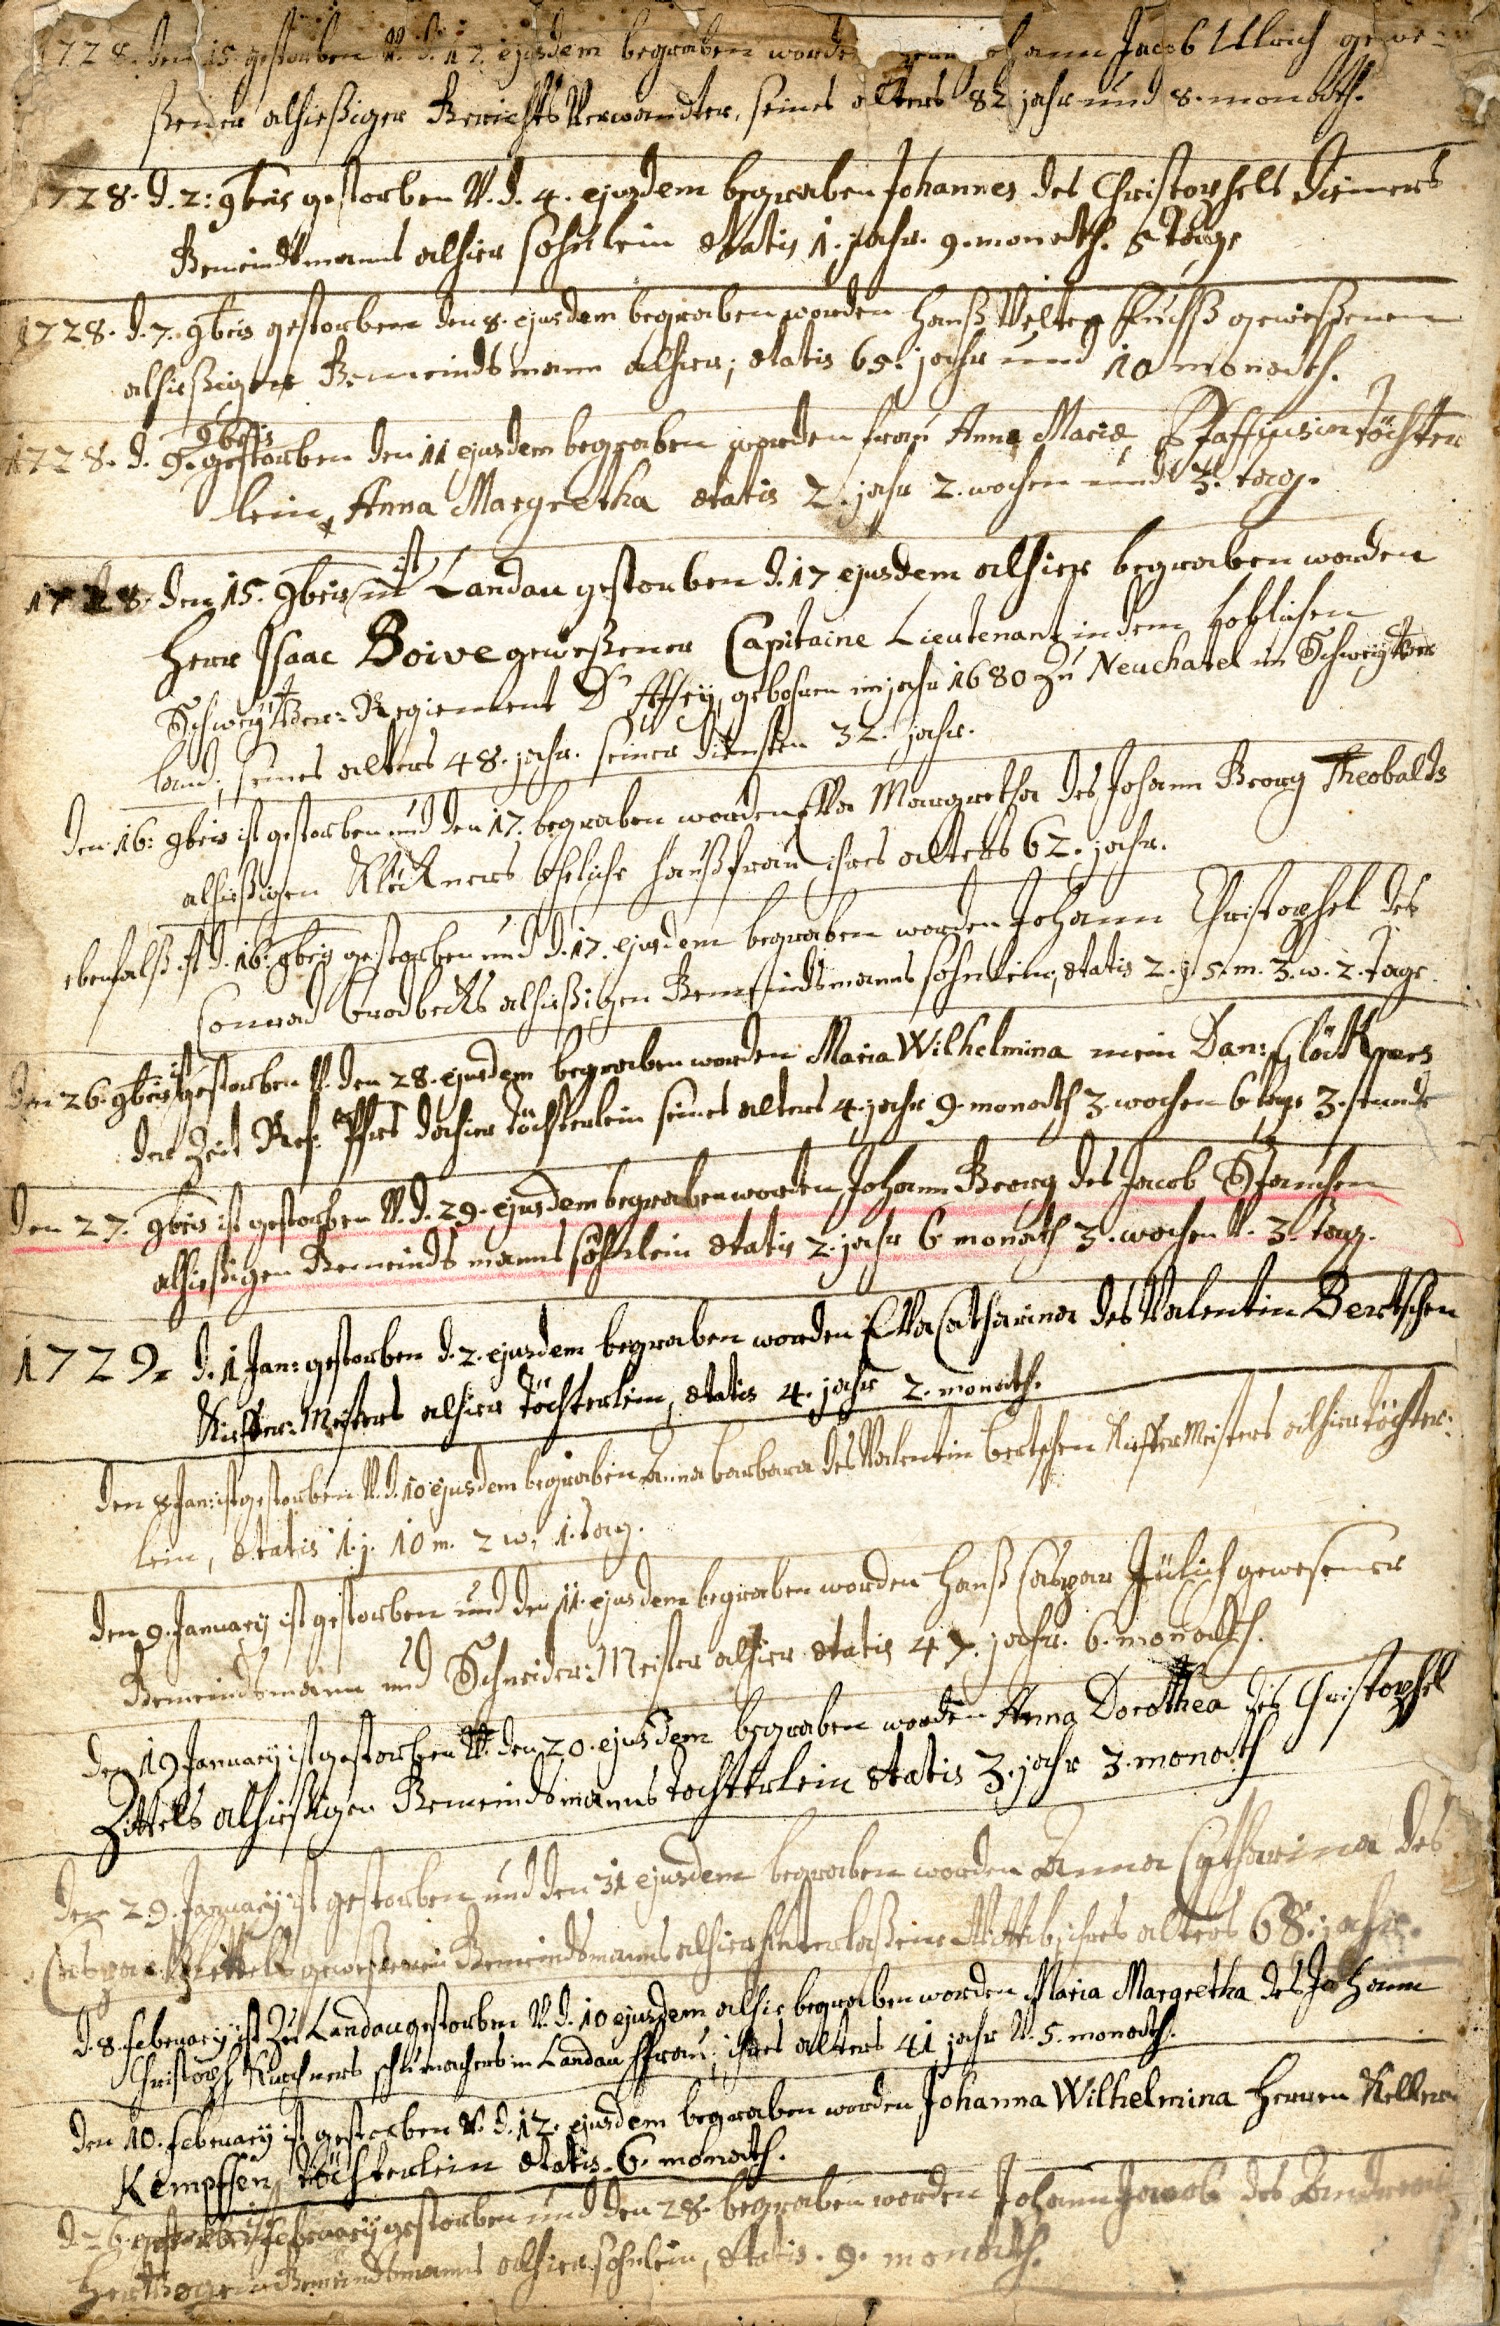 1728. den 15 gestorben u. d. 17. ejusdem begraben worden Johann Jacob Ulrich gewe-
ßener alhießiger Gerichts Verwandter, seines alters 82 jahr und 8. monath.
1728. d. 2: 9bris gestorben u. d. 4. ejusdem begraben Johannes des Christophels Diemers
Gemeindsmanns alhier söhnlein ætatis 1. jahr. 9. monath. 5 täge
1728. d. 7. 9bris gestorben den 8. ejusdem begraben worden Hanß Velten Fuchß geweßenen
alhießigen Gemeindsmann alhier; ætatis 65. jahr und 10 monath.
1728. d. 9. 9bris gestorben den 11 ejusdem begraben worden frau Anna Maria Pfaffiusin töchter
lein, Anna Margretha ætatis 2. jahr 2. wochen und 3. tag.
1728. den 15. 9bris ist in Landau gestorben d. 17 ejusdem alhier begraben worden
Herr Isaac Boive geweßener Capitaine Lieutenant in dem Loblichen
Schweytzer: Regiement D'Affry, gebohren im jahr 1680 zu Neuchatel im Schweytzer
land; seines alters 48. jahr. seiner diensten 32. jahr.
den 16: 9bris ist gestorben und den 17. begraben worden Eva Margretha des Johann Georg Theobalds
alhießigen Klöckners ehliche haußfrau ihres alters 62. jahr.
ebenfalß ist d. 16. 9bris gestorben und d. 17. ejusdem begraben worden Johann Christophel des
Conrad brodbecks alhießigen Gemeindsmanns söhnlein, ætatis 2. j. 5. m. 3. w. 2. täge
den 26. 9bris ist gestorben u. den 28. ejusdem begraben worden Maria Wilhelmina mein Dan: Clöckners
der Zeit Ref. Pfrs dahier töchterlein seines alters 4. jahr 9. monath 3. wochen 6 täge 3. stunde
den 27. 9bris ist gestorben u. d. 29. ejusdem begraben worden Johann Georg des Jacob
alhießigen Gemeinds manns söhnlein ætatis 2. jahr 6 monath 3. wochen u. 3. tag.
1729. d. 1 Jan: gestorben d. 2. ejusdem begraben worden Eva Catharina des Valentin Bertschen
Kieffer: Meisters alhier töchterlein, ætatis 4. jahr 2. monath.
den 8 Jan: ist gestorben u. d. 10 ejusdem begraben Anna barbara des Valentin bertschen Kieffer Meisters alhier töchter:
lein, ætatis 1. j. 10 m. 2 w. 1. tag.
den 9. January ist gestorben und den 11. ejusdem begraben worden Hanß Caspar Jülich gewesener
Gemeindsmann und Schneider: Meister alhier ætatis 47. jahr. 6. monath.
den 19 January ist gestorben u. den 20. ejusdem begraben worden Anna Dorothea des Christophel
Zittels alhießigen Gemeindsmanns tochterlein ætatis 3. jahr 3. monath
den 29. January ist gestorben und den 31 ejusdem begraben worden Anna Catharina des
Caspar Zittels geweßenen Gemeindsmanns alhier hinterlaßene Wittib, ihres alters 68. jahr.
d. 8. february ist zu Landau gestorben u. d. 10 ejusdem alhier begraben worden Maria Margretha des Johann
Christoph Kirchners schumachers in Landau Hfrau; ihres alters 41 jahr u. 5. monath.
den 10. february ist gestorben u. d. 12. ejusdem begraben worden Johanna Wilhelmina Herren Kellern
Kempffen töchterlein ætatis. 6. monath.
february gestorben und den 28. begraben worden Johann Jacob des Andreas
Hertzogen Gemeindsmanns alhier söhnlein, ætatis. 9. monath.